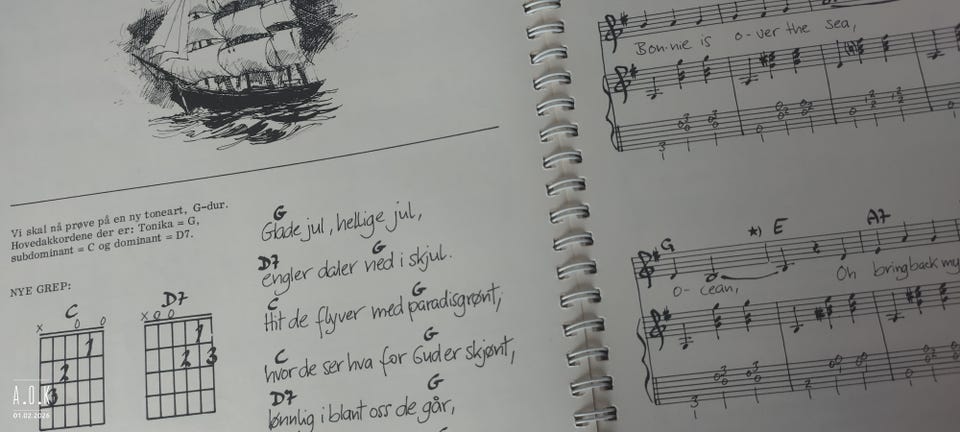 Vi skal nå prøve på en ny toneart, G-dur.
Hovedakkordene der er: Tonika = G,
subdominant = C og dominant = D7.
NYE GREP:
C
x o o
1
2
3
D7
x o o
1
2 3
G
Glade jul, hellige jul,
D7 G
engler daler ned i skjul.
C G
Hit de flyver med paradisgrønt,
C G
hvor de ser hva for Gud er skjønt,
D7 G
lønnlig i blant oss de går,
G
Bon-nie is o-ver the sea,
G *) E A7
o- cean, Oh bring back my
A.O.K
01.02.2026